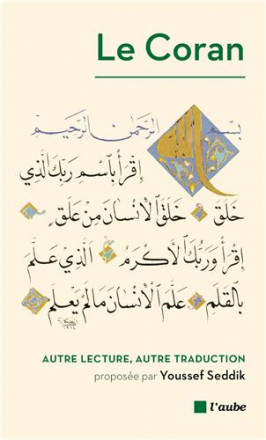 Le Coran
بسم الله الرحمن الرحيم
إقرأ باسم ربك الذي
خلق خلق الإنسان من علق
إقرأ وربك الأكرم الذي علم
بالقلم علم الإنسان ما لم يعلم
AUTRE LECTURE, AUTRE TRADUCTION
proposée par Youssef Seddik
l'aube